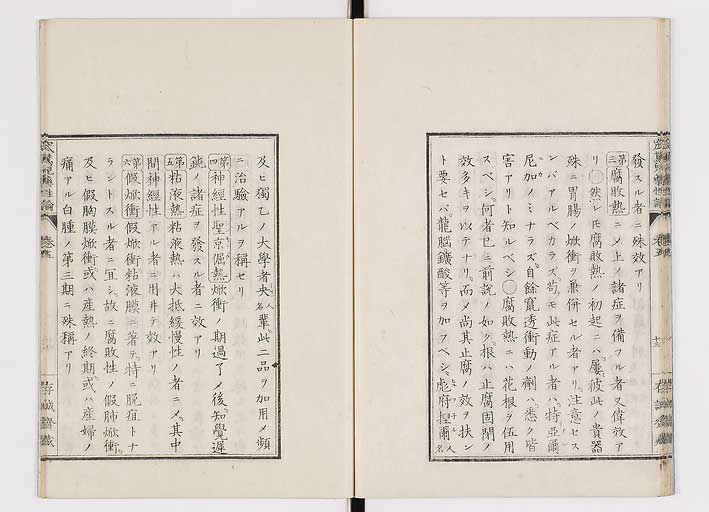 發スル者ニ殊效アリ
第三腐敗熱ニメ上ノ諸症ヲ備フル者又偉效ア
リ〇然レモ腐敗熱ノ初起ニハ屢彼此ノ貴器
殊ニ胃腸ノ焮衝ヲ兼併セル者アリ注意セス
ンバアルベカラズ苟モ此症アル者ハ特亞爾
尼加ノミナラズ自餘竄透衝動ノ劑ハ悉ク皆
害アリト知ルベシ〇腐敗熱ニハ花根ヲ伍用
スベシ何者已ニ前說ノ如ク根ハ止腐固閉ノ
效多キヲ以テナリ而メ尚其止腐ノ效ヲ扶ン
ト要セバ龍腦鑛酸等ヲ加フベシ彪府捏爾人名
及ヒ獨乙ノ大學者央人名輩此二品ヲ加用メ頻
ニ治驗アルヲ稱セリ
第四神經性聖京倔熱焮衝ノ期過了メ後知覺遲
鈍ノ諸症ヲ發スル者ニ效アリ
第五粘液熱粘液熱ハ大抵緩慢性ノ者ニメ其中
間神經性アル者ニ用井テ效アリ
第六假焮衝假焮衝粘液膜ニ著テ特ニ脫疽トナ
ラントスル者ニ宜シ故ニ腐敗性ノ假肺焮衝
及ヒ假胸膜焮衝或ハ產熱ノ終期或ハ產婦ノ
痛アル白腫ノ第三期ニ殊稱アリ
卷五